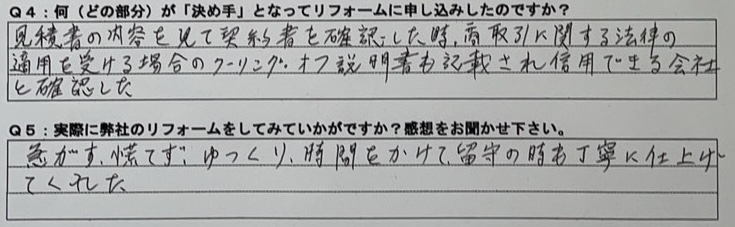 Q4:何(どの部分)が「決め手」となってリフォームに申し込みしたのですか?
見積書の内容を見て契約者を確認した時、商取引に関する法律の
適用を受ける場合のクーリング・オフ説明書も記載され信用できる会社
と確認した
Q5:実際に弊社のリフォームをしてみていかがですか?感想をお聞かせ下さい。
急がず、慌てず、ゆっくり、時間をかけて、留守の時も丁寧に仕上げ
てくれた